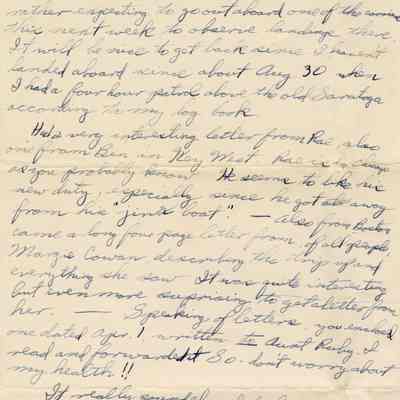 rather expecting to go out aboard one of the carriers
this next week to observe landings there.
It will be nice to get back since I haven't
landed aboard since about Aug 30 when
I had a four hour patrol above the old Saratoga
according to my log book.
Had a very interesting letter from Rae, also
one from Ben in Key West. Rae is in
as you probably know. He seems to like his
new duty, especially since he got all away
from his "jinks boat". — Also from Boston
came a long four page letter from, of all people,
Margie Cowan describing the trip up and
everything she saw. It was quite interesting
but even more surprising to get a letter from
her. — Speaking of letters you enclosed
one dated Apr. 1 written to Aunt Ruby. I
read and forwarded it. So don't worry about
my health!!
It really